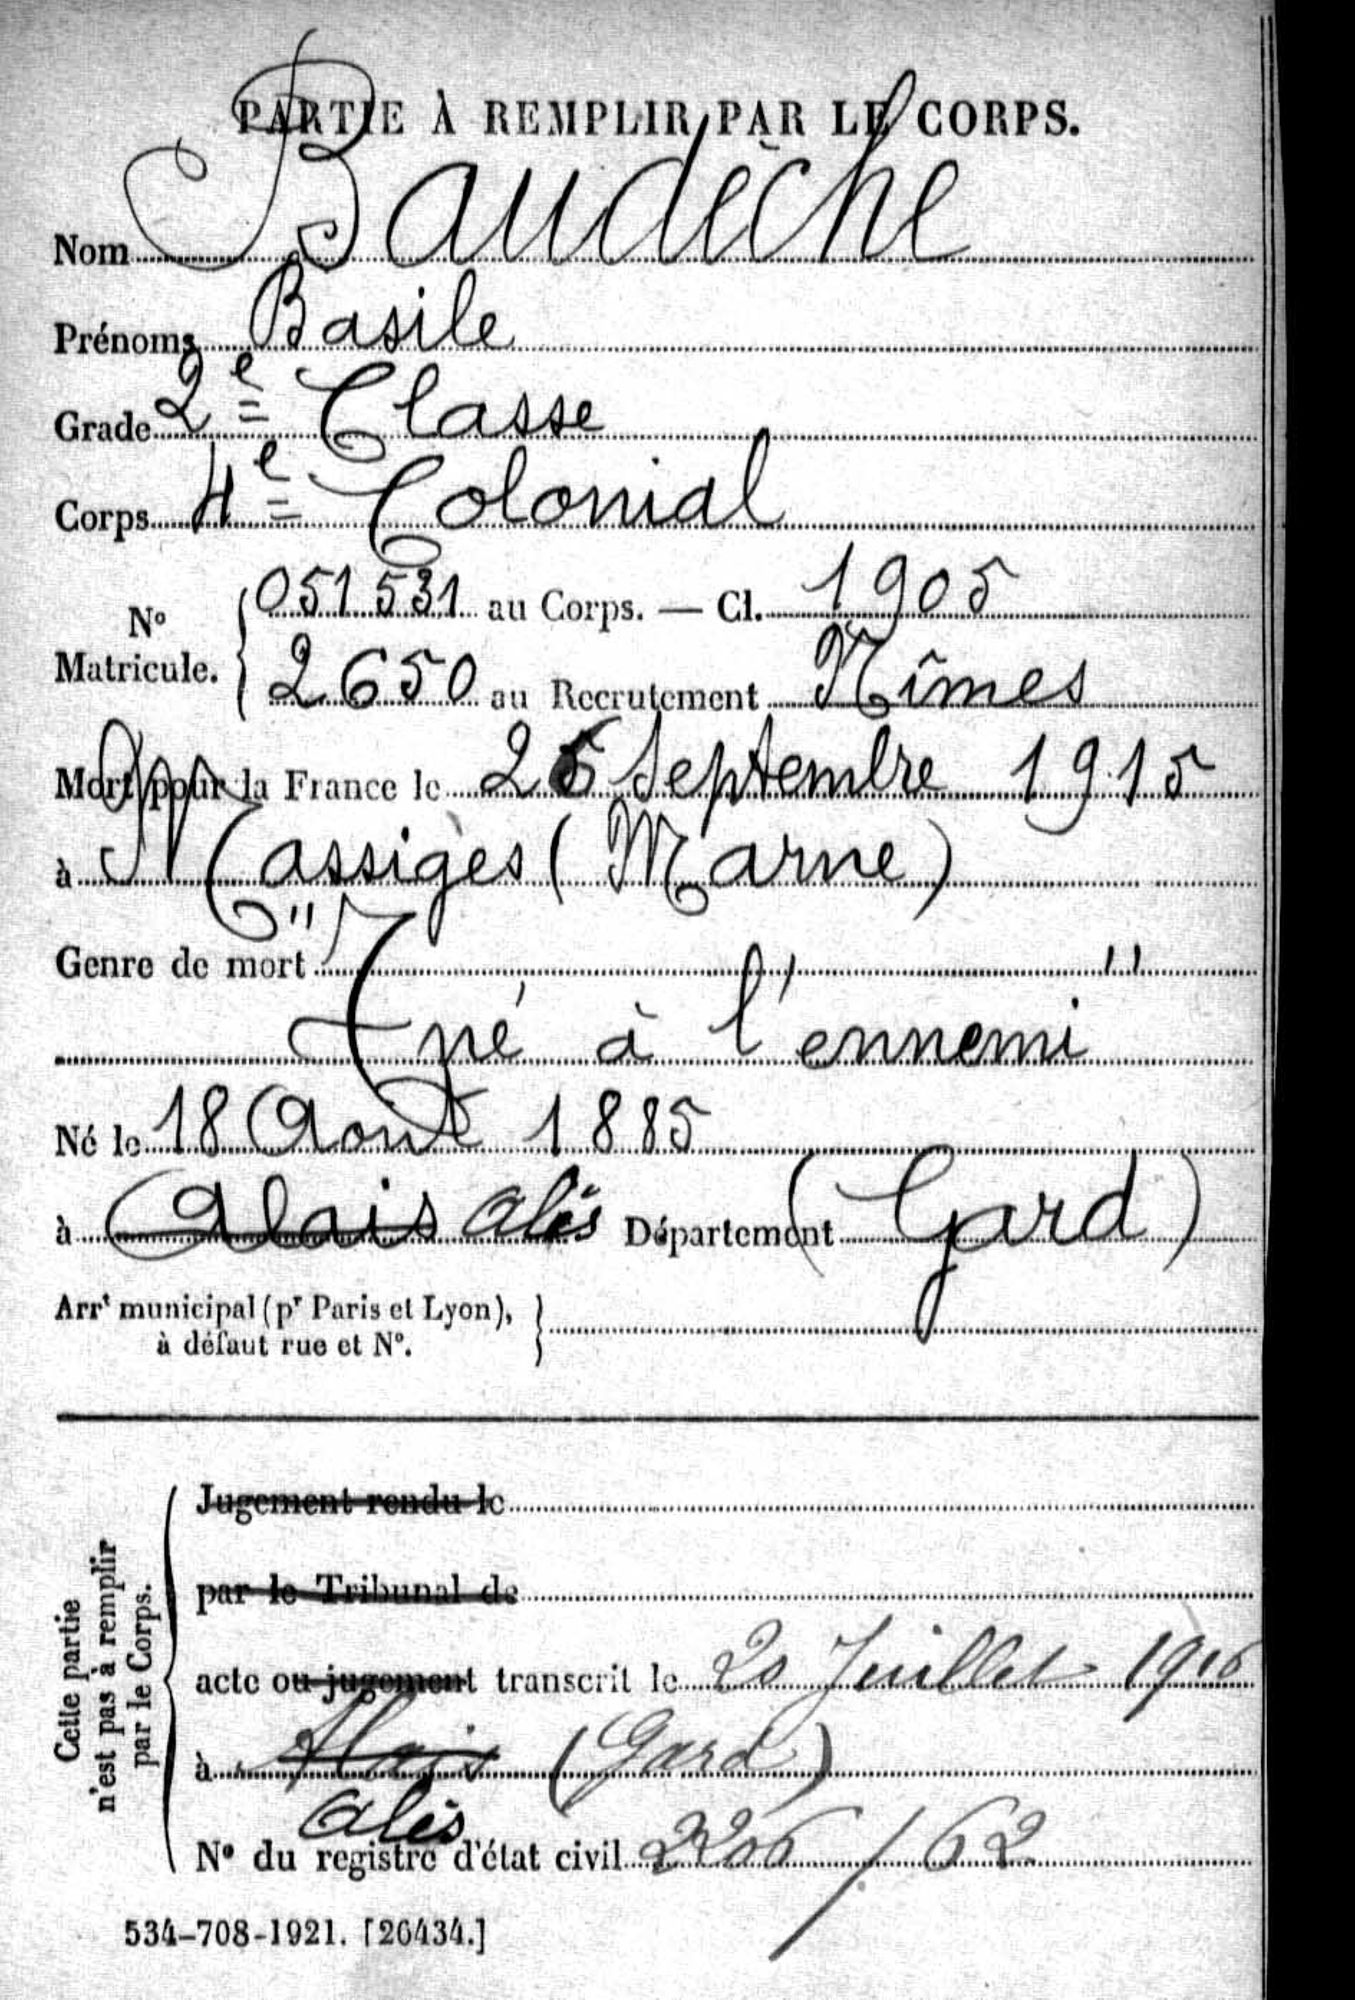 PARTIE À REMPLIR PAR LE CORPS.
Nom Baudèche
Prénoms Basile
Grade 2e Classe
Corps 4e Colonial
No Matricule. { 051531 au Corps. — Cl. 1905
2650 au Recrutement Nîmes
Mort pour la France le 25 Septembre 1915
à Massiges (Marne)
Genre de mort "
Tué à l'ennemi "
Né le 18 Août 1885
à Alais Alès Département (Gard)
Arrt municipal (pr Paris et Lyon),
à défaut rue et No.
Cette partie
n'est pas à remplir
par le Corps.
Jugement rendu le
par le Tribunal de
acte ou jugement transcrit le 20 Juillet 1916
à Alais (Gard)
Alès
No du registre d'état civil 2206 / 62
534-708-1921. [26434.]